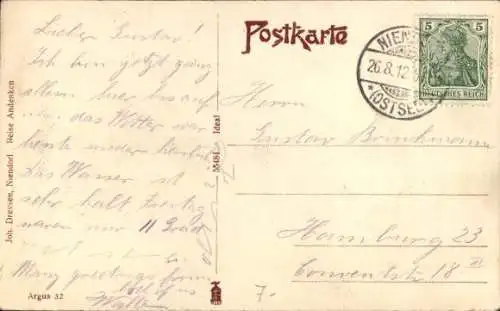 Lieber Gustav!
Ich bin jetzt ganz
allein hier bis auf
das Wetter war
heute wieder herrlich
Das Wasser ist
sehr kalt Freitag
waren nur 11 Grad
Many greetings from
Walter
Argus 32
Joh. Drevsen, Niendorf Weise Andenken
55481 Ideal
Postkarte
NIEN
26.8.12
*(OSTSEE)
5 5
DEUTSCHES REICH
Herrn
Gustav Brinkmann
Hamburg 23
Conventstr 18 III
7.-